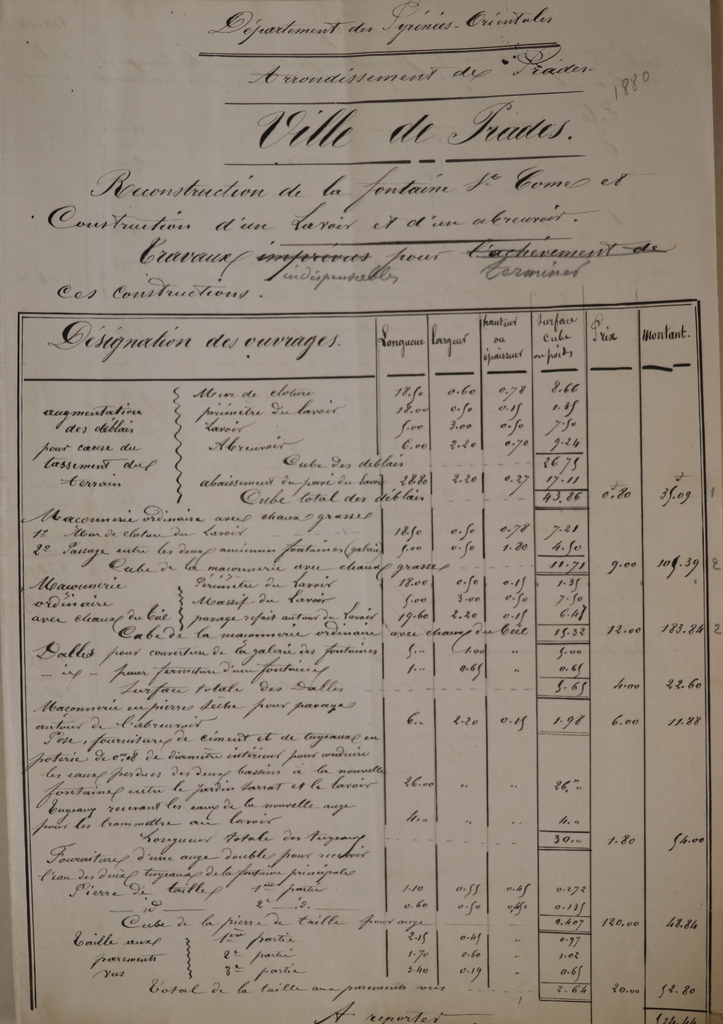 Département des Pyrénées-Orientales
Arrondissement de Prades.
1880
Ville de Prades.
Reconstruction de la fontaine St Come et
Construction d'un Lavoir et d'un abreuvoir.
Travaux imprévus pour l'achèvement de
indispensables terminer
ces constructions.
Désignation des ouvrages. Longueur Largeur hauteur ou épaisseur surface cube ou poids Prix Montant.
Mur de cloture 18.50 0.60 0.78 8.66
augmentation périmètre du lavoir 18.00 0.50 0.15 1.35
des déblais Lavoir 5.00 3.00 0.50 7.50
pour cause du Abreuvoir 6.00 2.20 0.70 9.24
tassement du Cube des déblais 26.75
terrain abaissement du pavé du lavoir 28.80 2.20 0.27 17.11
Cube total des déblais 43.86 0.80 35.09 1
Maçonnerie ordinaire avec chaux grasse
1° Mur de cloture du Lavoir 18.50 0.50 0.78 7.21
2° Passage entre les deux anciennes fontaines (galerie) 5.00 0.50 1.80 4.50
Cube de la maçonnerie avec chaux grasse 11.71 9.00 105.39 2
Maçonnerie Périmètre du Lavoir 18.00 0.50 0.15 1.35
ordinaire Massif du Lavoir 5.00 3.00 0.50 7.50
avec chaux du Teil pavage refait autour du Lavoir 19.60 2.20 0.15 6.47
Cube de la maçonnerie ordinaire avec chaux du Teil 15.32 12.00 183.84 2
Dalles pour couverture de la galerie des fontaines 5.. 1.00 " 5.00
- id - pour fermeture d'une fontaine 1.. 0.65 " 0.65
Surface totale des Dalles 5.65 4.00 22.60
Maçonnerie en pierre sèche pour pavage
autour de l'abreuvoir 6.. 2.20 0.15 1.98 6.00 11.88
Pose, fourniture de ciment et de tuyaux en
poterie de 0m08 de diamètre intérieur pour conduire
les eaux perdues des deux bassins à la nouvelle
fontaine entre le jardin Sarrat et le lavoir 26.00 " " 26."
Tuyaux recevant les eaux de la nouvelle auge
pour les transmettre au lavoir 4.. " " 4..
Longueur totale des tuyaux 30.. 1.80 54.00
Fourniture d'une auge double pour recevoir
l'eau des deux tuyaux de la fontaine principale
Pierre de taille 1ère partie 1.10 0.55 0.45 0.272
id 2e id. 0.60 0.50 0.45 0.135
Cube de la pierre de taille pour auge 0.407 120.00 48.84
Taille aux 1ère partie 2.15 0.45 " 0.97
parements 2e partie 1.70 0.60 " 1.02
vus 3e partie 3.40 0.19 " 0.65
Total de la taille aux parements vus 2.64 20.00 52.80
A reporter 514.44